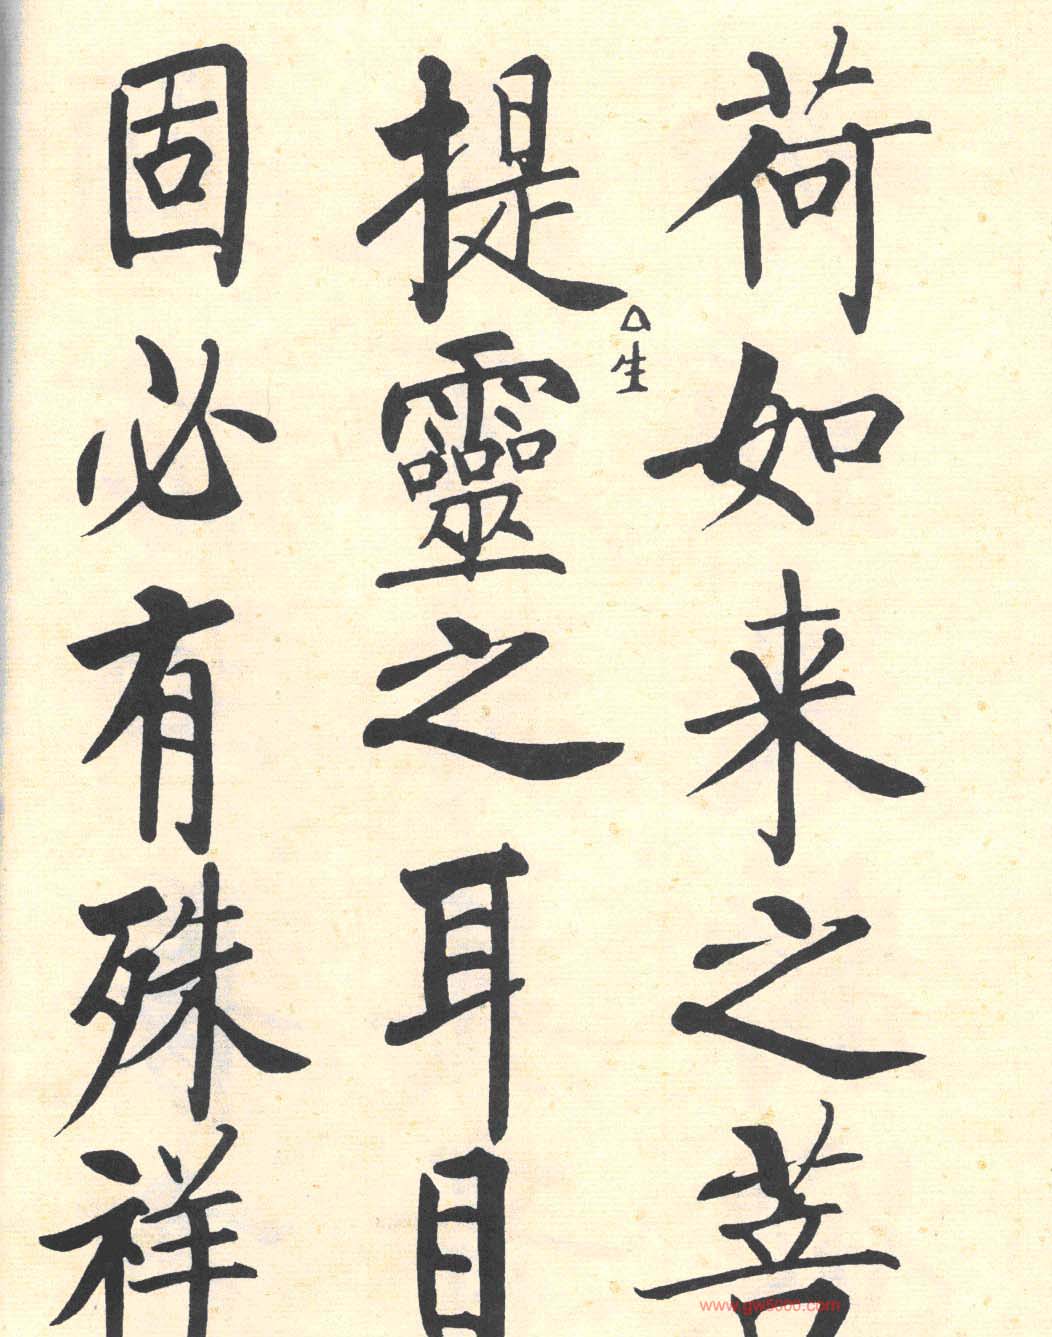 荷如来之菩
提△生靈之耳目
固必有殊祥
www.gw5000.com